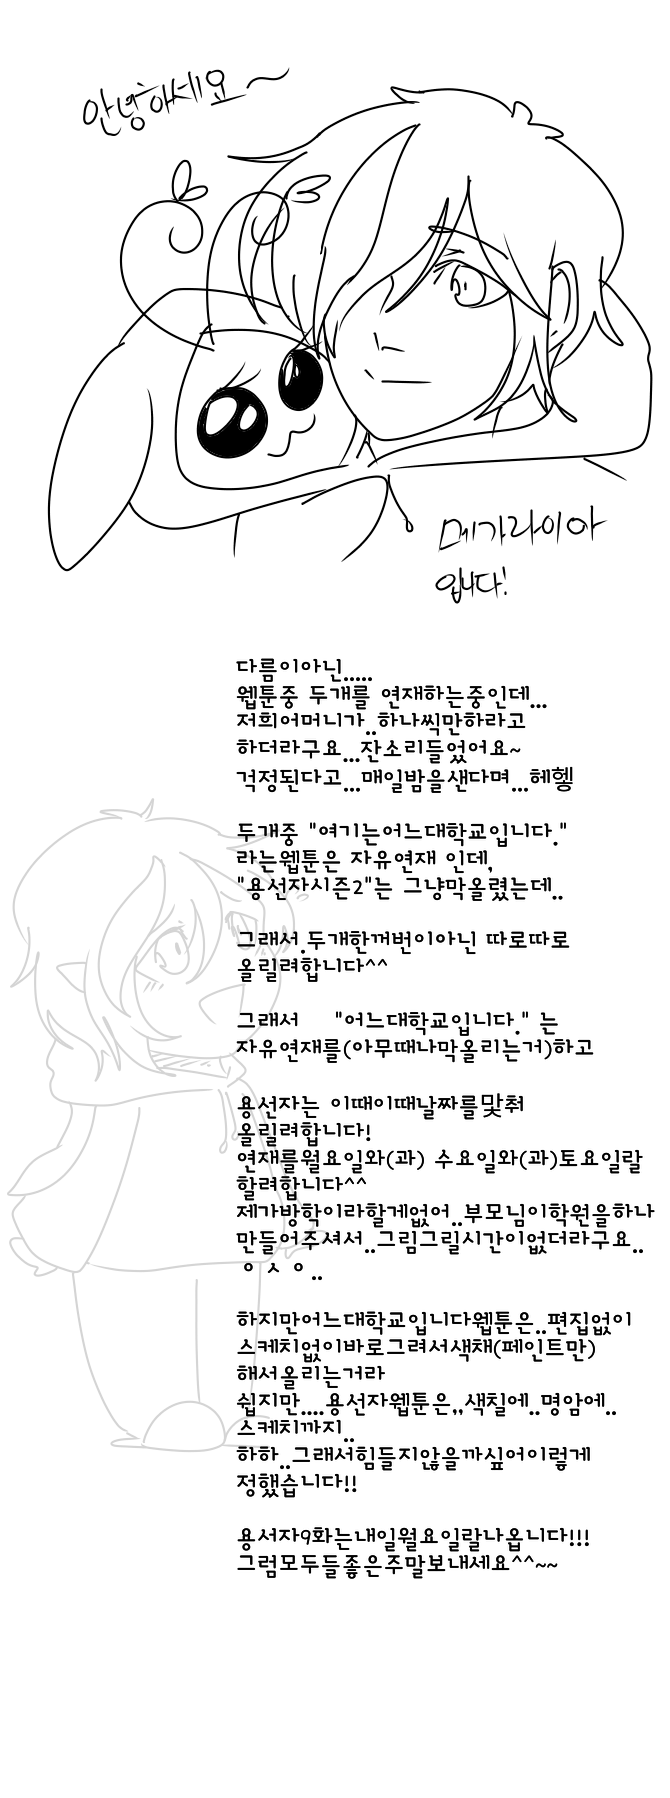 안녕하세요~
메가라이아
입니다!
다름이아닌.....
웹툰중 두개를 연재하는중인데...
저희어머니가..하나씩만하라고
하더라구요...잔소리들었어요~
걱정된다고...매일밤을샌다며...헤헿
두개중 "여기는어느대학교입니다."
라는웹툰은 자유연재 인데,
"용선자시즌2"는 그냥막올렸는데..
그래서.두개한꺼번이아닌 따로따로
올릴려합니다^^
그래서 "어느대학교입니다." 는
자유연재를(아무때나막올리는거)하고
용선자는 이때이때날짜를맟춰
올릴려합니다!
연재를월요일와(과) 수요일와(과)토요일랄
할려합니다^^
제가방학이라할게없어..부모님이학원을하나
만들어주셔서..그림그릴시간이없더라구요..
ㅇㅅㅇ..
하지만어느대학교입니다웹툰은..편집없이
스케치없이바로그려서색채(페인트만)
해서올리는거라
쉽지만....용선자웹툰은,,색칠에..명암에..
스케치까지..
하하..그래서힘들지않을까싶어이렇게
정했습니다!!
용서자9화는내일월요일랄나옵니다!!!
그럼모두들좋은주말보내세요^^~~